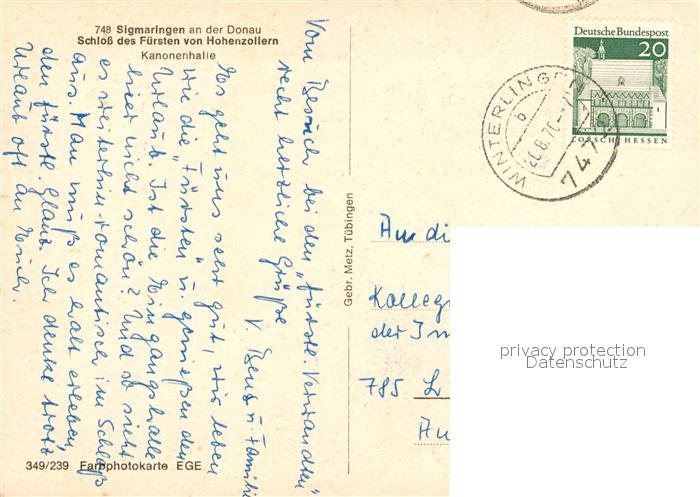 748 Sigmaringen an der Donau
Schloß des Fürsten von Hohenzollern
Kanonenhalle
Vom Besuch bei den „fürstl. Verwandten"
recht herzliche Grüße
V. Benz u. Familie
Es geht uns sehr gut, wir leben
wie die „Fürsten" u. genießen den
Urlaub. Ist die Eingangshalle
hier nicht schön? Und so sieht
es weiterhin romantisch im Schloß
aus. Man muß es halt erleben,
den fürstl. Glanz. Ich denke trotz
Urlaub oft an Euch.
349/239 Farbphotokarte EGE
Gebr. Metz, Tübingen
Deutsche Bundespost
20
LORSCH/HESSEN
WINTERLINGEN
b
747
An di
Kolleg
der In
785 L
Au
privacy protection
Datenschutz